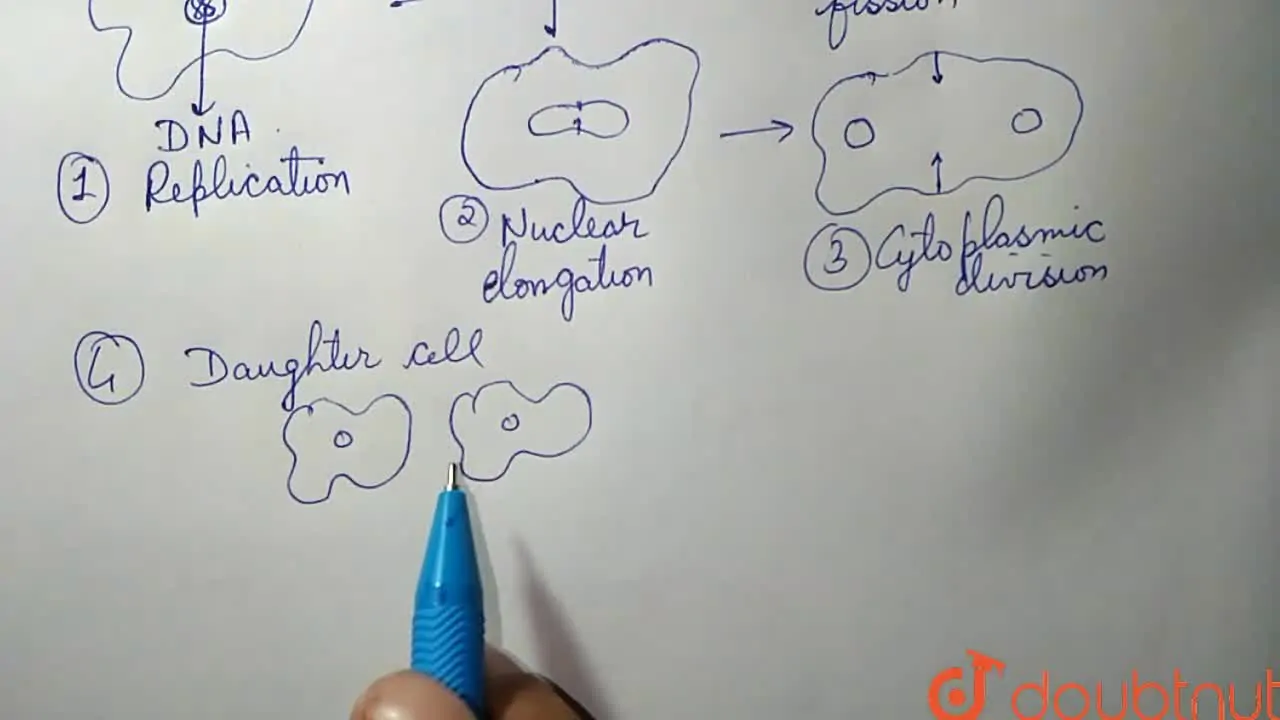 fission
DNA
1 Replication
2 Nuclear
elongation
3 Cytoplasmic
division
4 Daughter cell
doubtnut